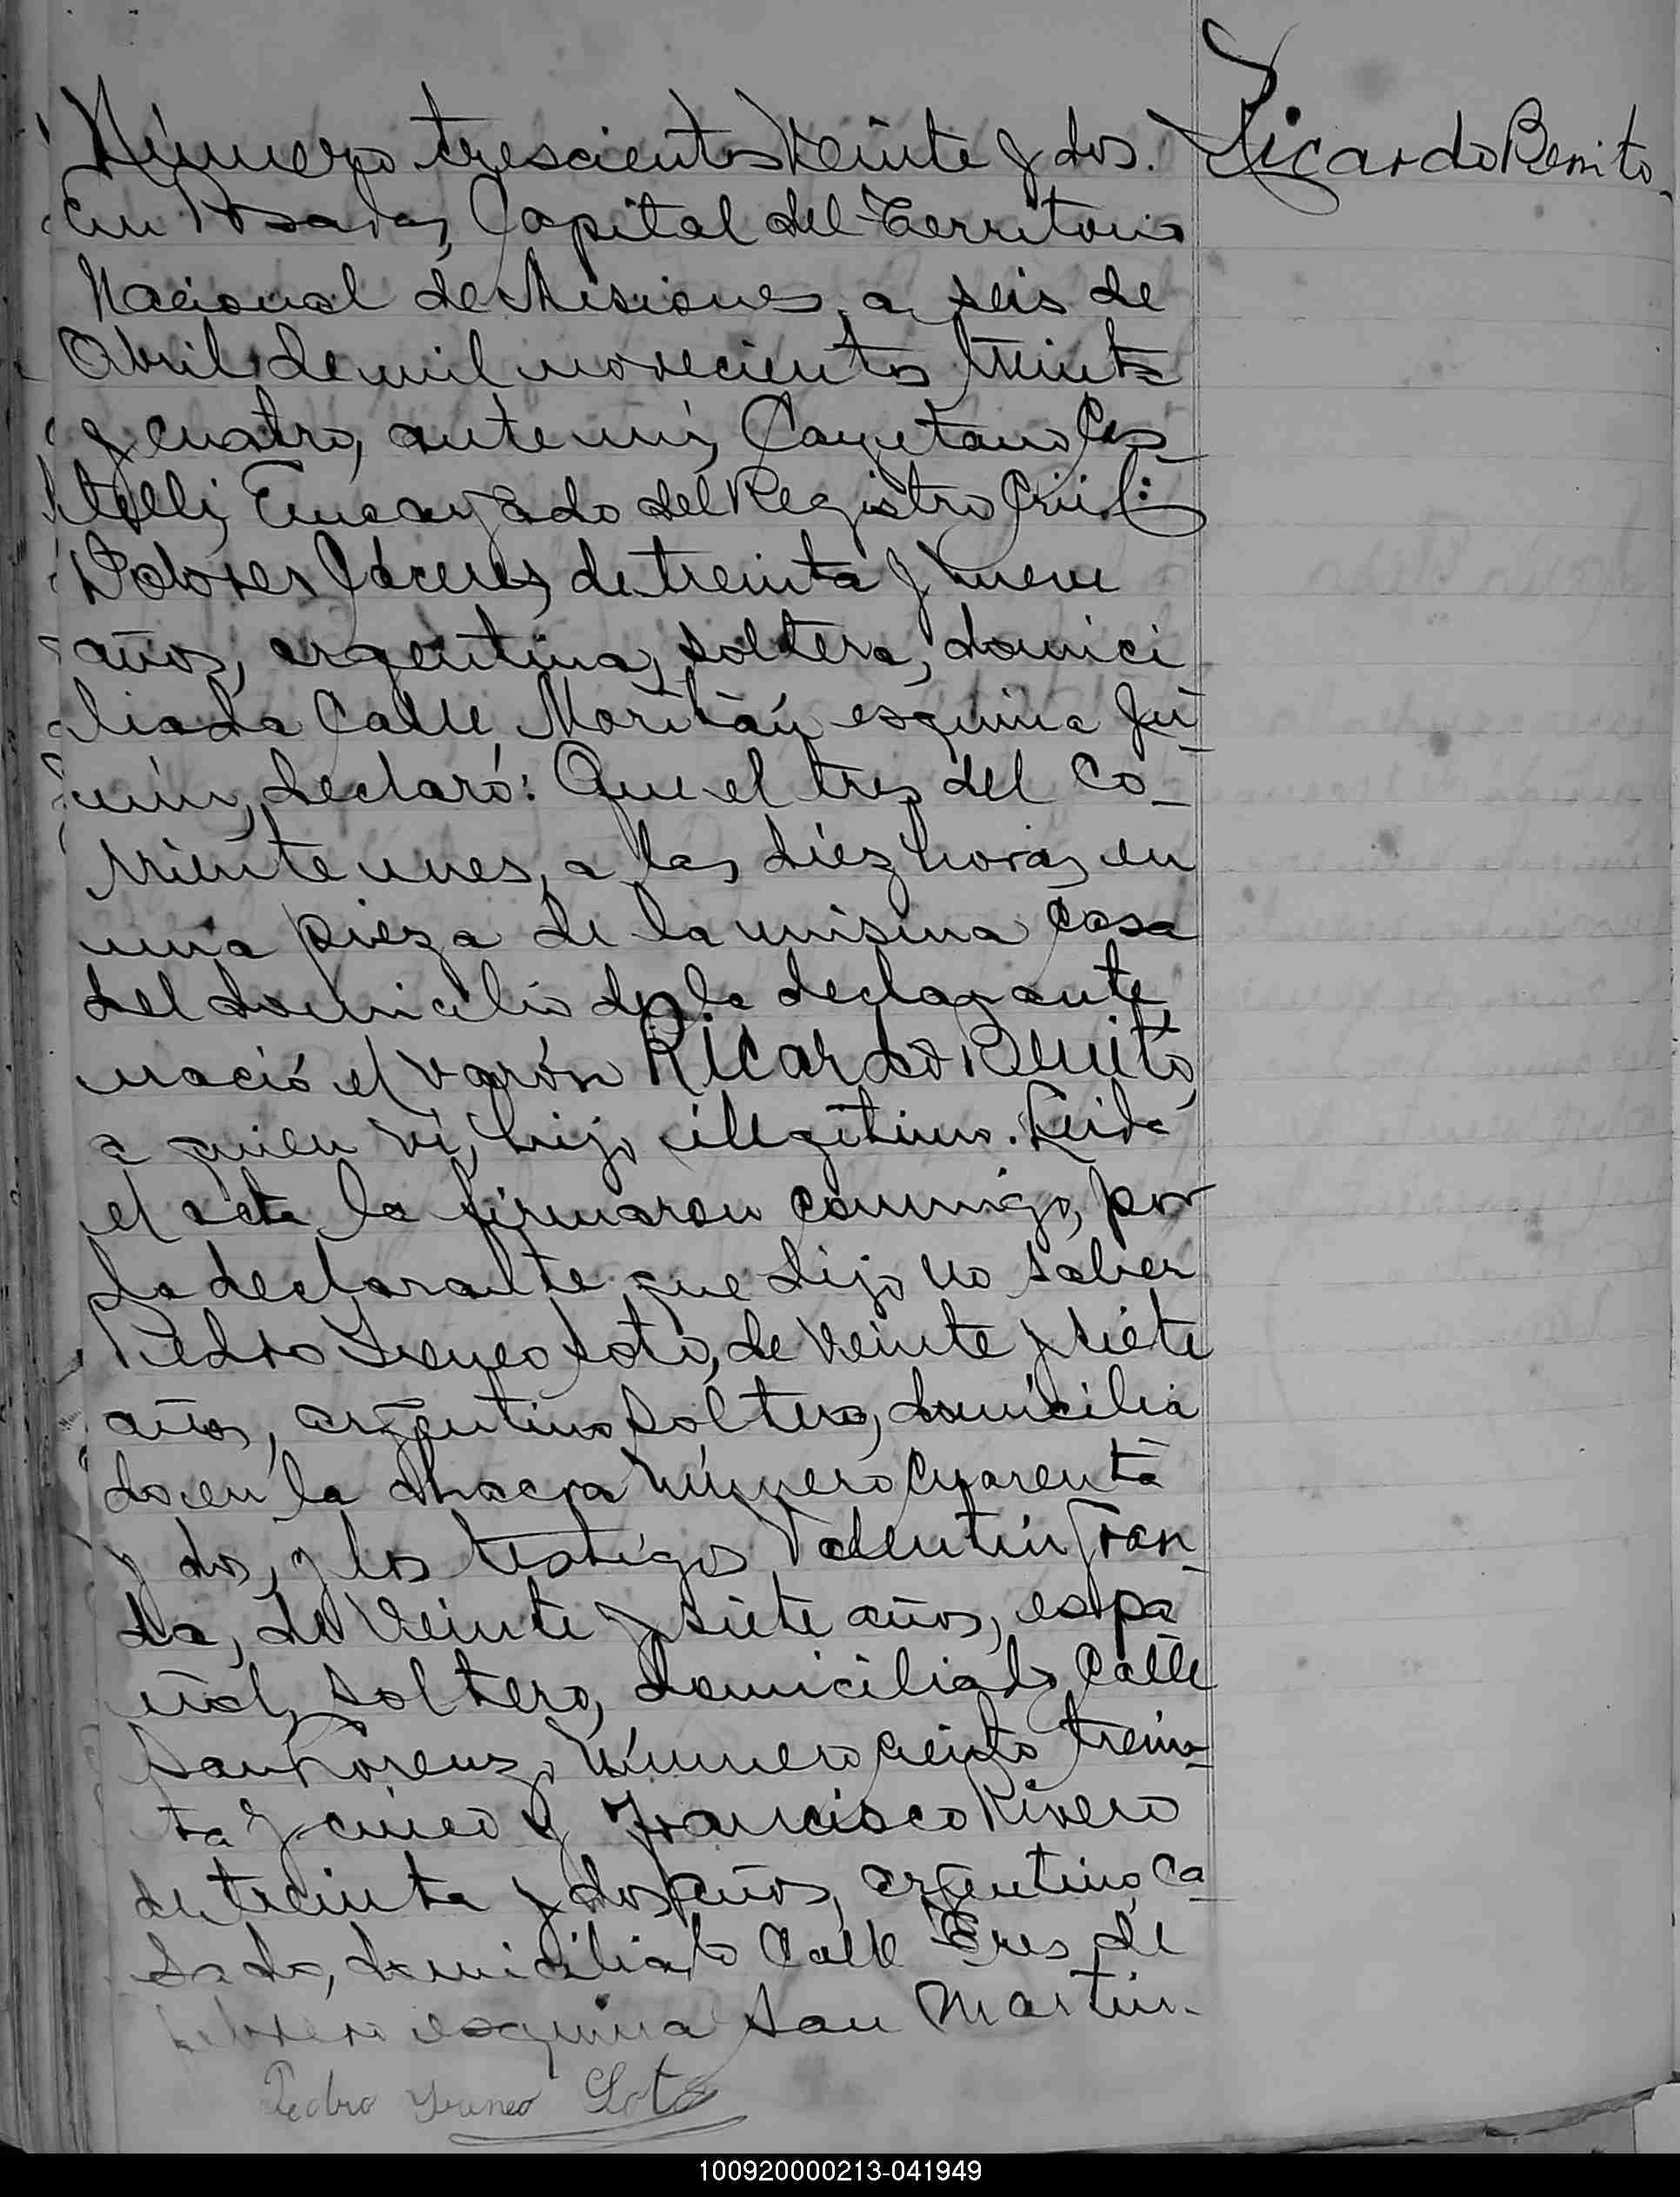 Número trescientos veinte y dos.
Ricardo Benito.
En Posadas, Capital del Territorio
Nacional de Misiones, a seis de
Abril de mil novecientos treinta
y cuatro, ante mí, Cayetano Cas-
telli, Encargado del Registro Civil:
Dolores Cáceres, de treinta y nueve
años, argentina, soltera, domici
liada Calle Moritán esquina Ju-
nín, declaró: Que el tres del co-
rriente mes, a las diez horas, en
una pieza de la misma casa
del domicilio de la declarante,
nació el varón Ricardo Benito,
a quien ví, hijo ilegítimo. Leida
el acta la firmaron conmigo, por
la declarante que dijo no saber
Pedro Ireneo Soto, de veinte y siete
años, argentino, soltero, domicilia
do en la chacra número cuarenta
y dos, y los testigos Valentín
da, de veinte y siete años, espa
ñol, soltero, domiciliado Calle
San Lorenzo número ciento trein-
ta y cinco y Francisco Rivero
de treinta y dos años, argentino, ca-
sado, domiciliado Calle Tres de
Febrero esquina San Martín.
Pedro Yreneo Soto
100920000213-041949